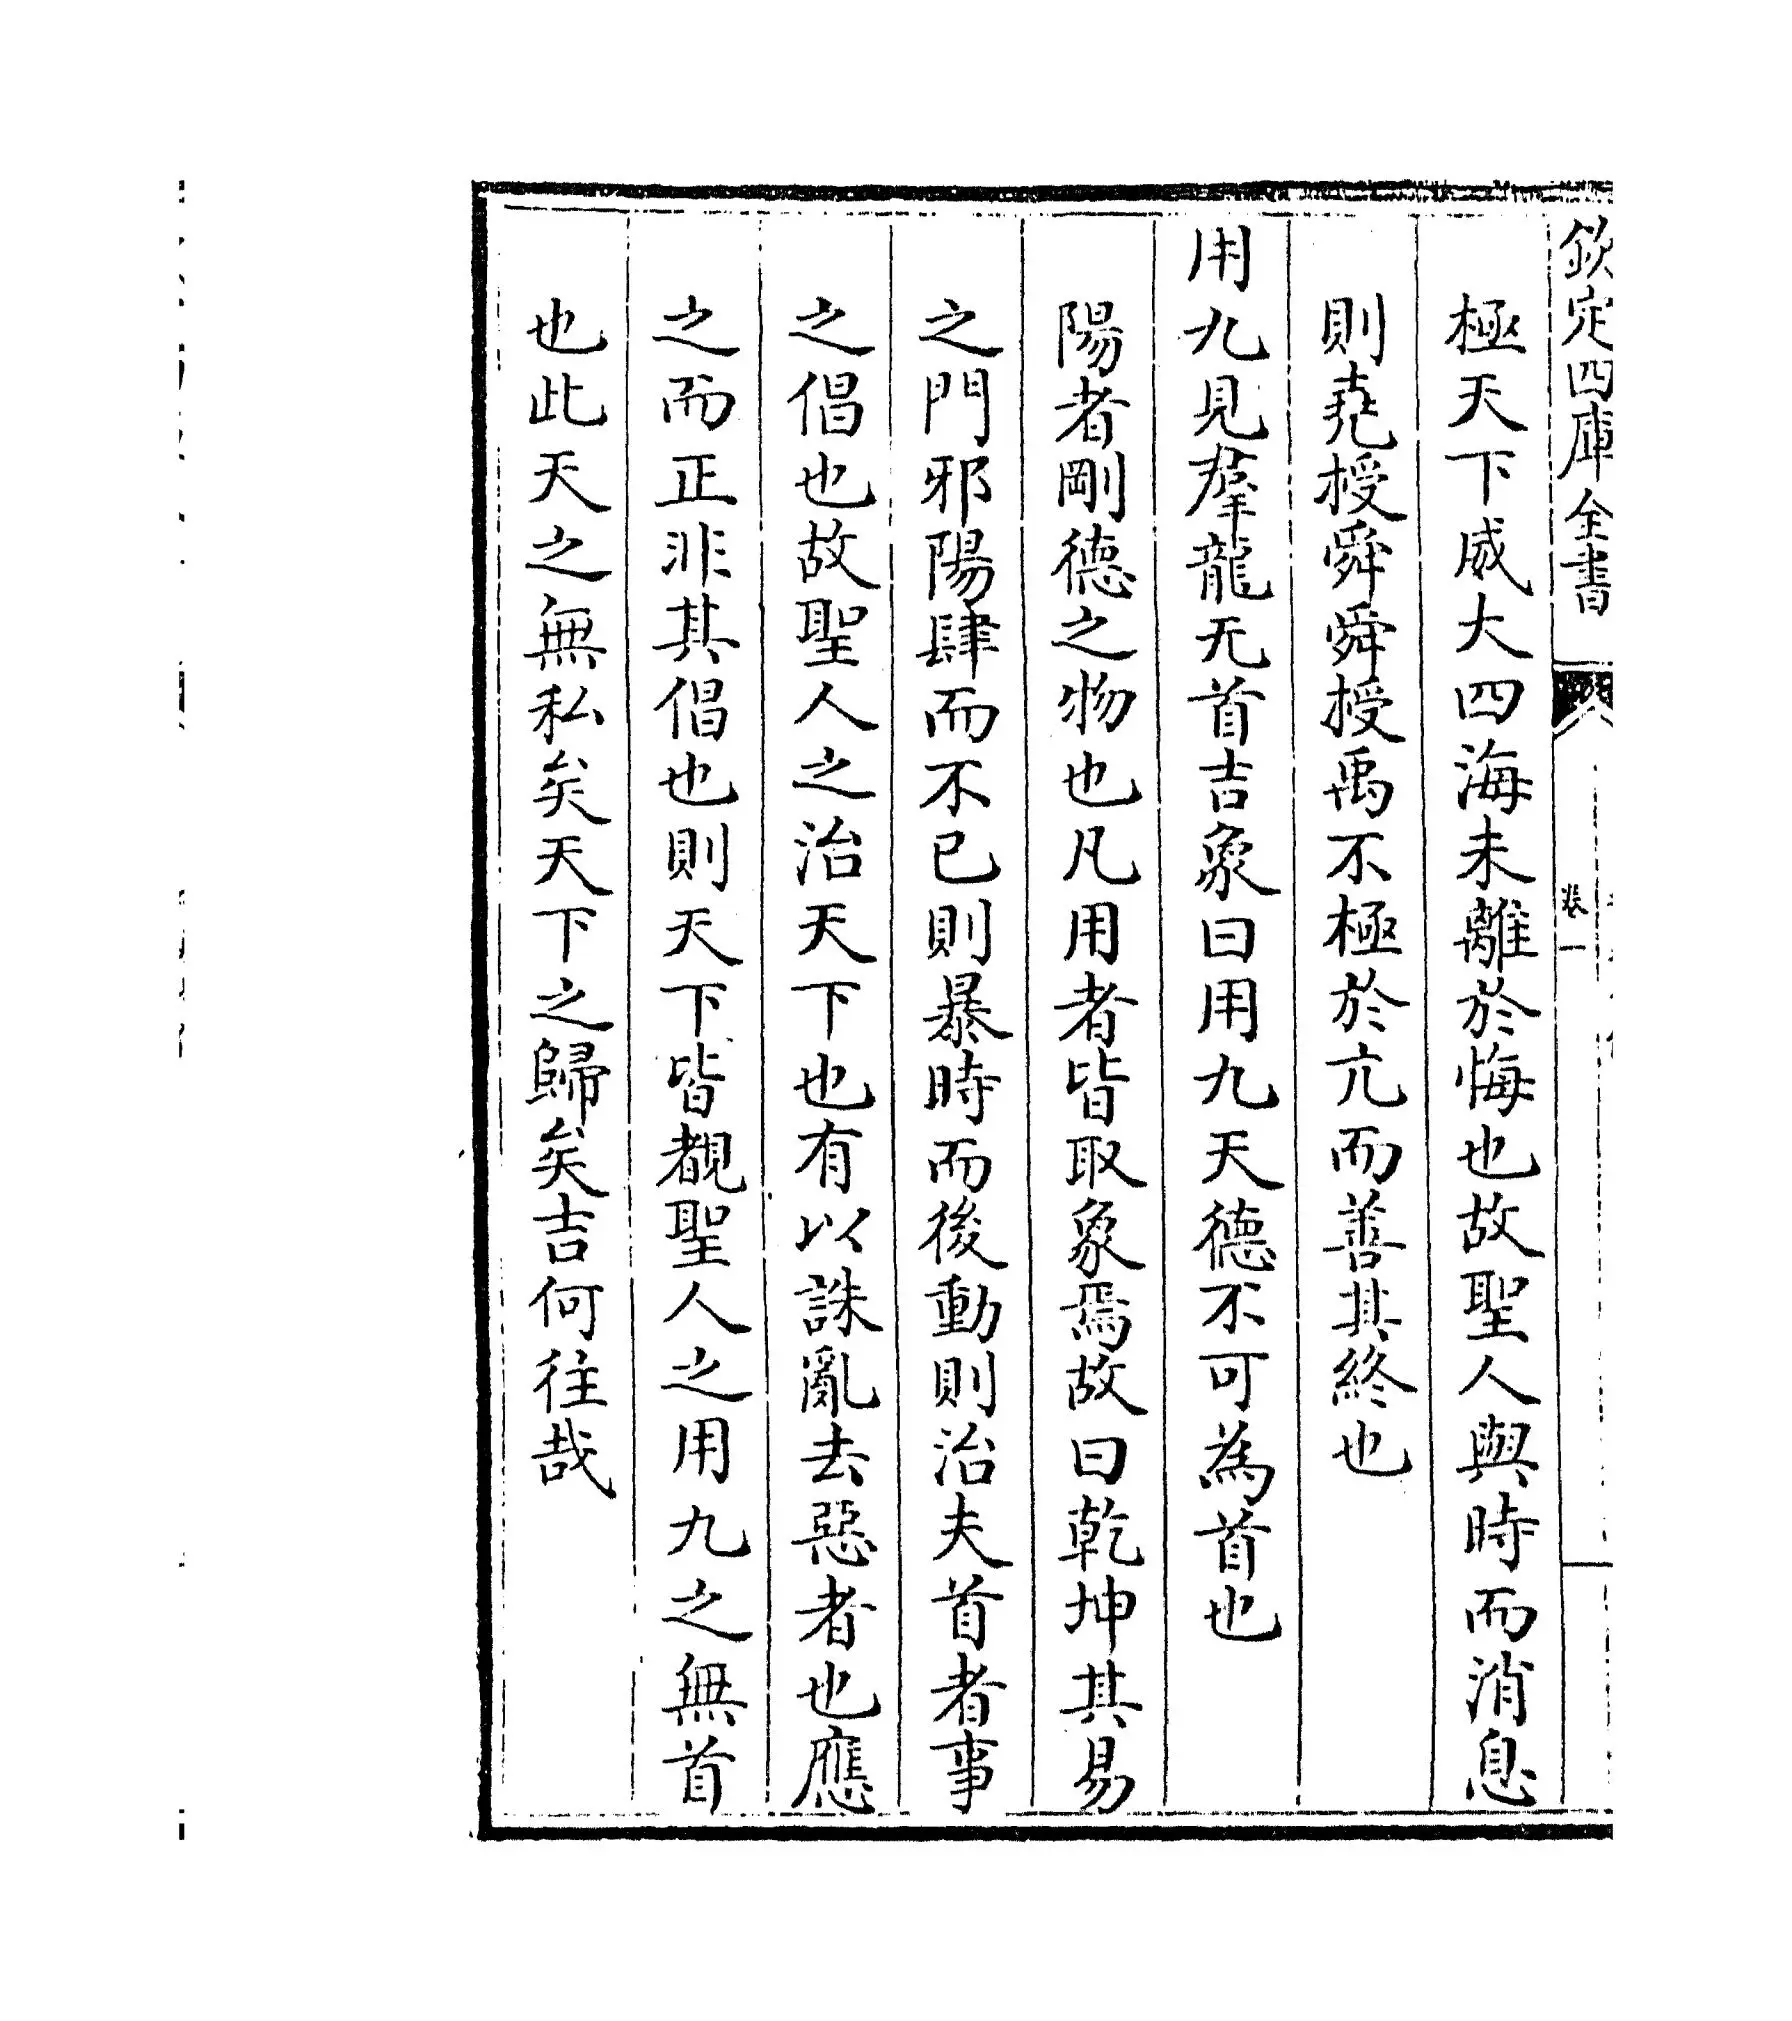 欽定四庫全書
卷一
極天下威大四海未離於悔也故聖人與時而消息
則堯授舜舜授禹不極於亢而善其終也
用九見羣龍无首吉象曰用九天德不可為首也
陽者剛德之物也凡用者皆取象焉故曰乾坤其易
之門邪陽肆而不已則暴時而後動則治夫首者事
之倡也故聖人之治天下也有以誅亂去惡者也應
之而正非其倡也則天下皆覩聖人之用九之無首
也此天之無私矣天下之歸矣吉何往哉